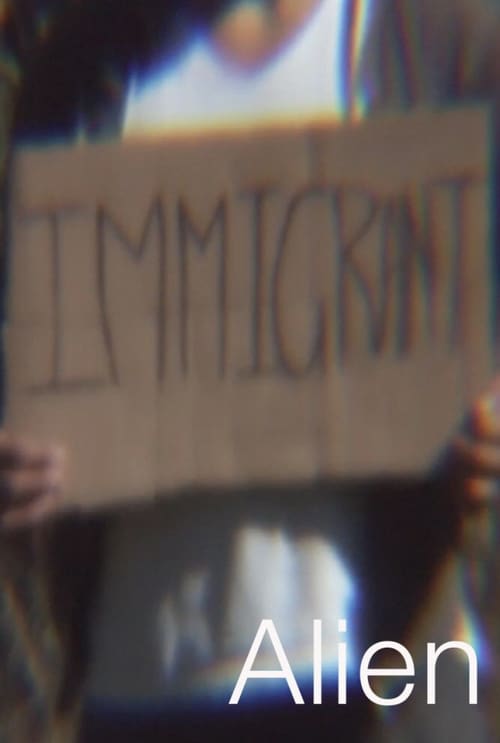 IMMIGRANT
Alien